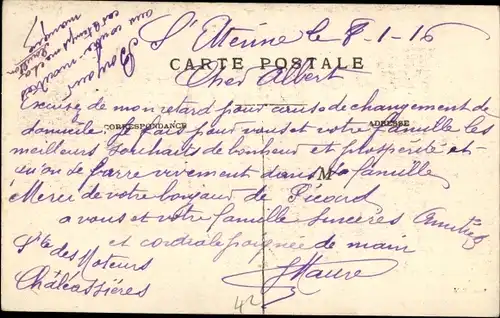 St Etienne le 8-1-16
CARTE POSTALE
Cher Albert
Excuse de mon retard pour cause de changement de
domicile Je fais pour vous et votre famille les
CORRESPONDANCE
ADRESSE
meilleurs souhaits de bonheur et prospérité et
qu'on se serre vivement dans la famille
M
Merci de votre bonjour de Picard
a vous et votre famille sincères amitiés
et cordiale poignée de main
Sté des Moteurs
Chaléassières
J Faure
42
Bonjour
aux